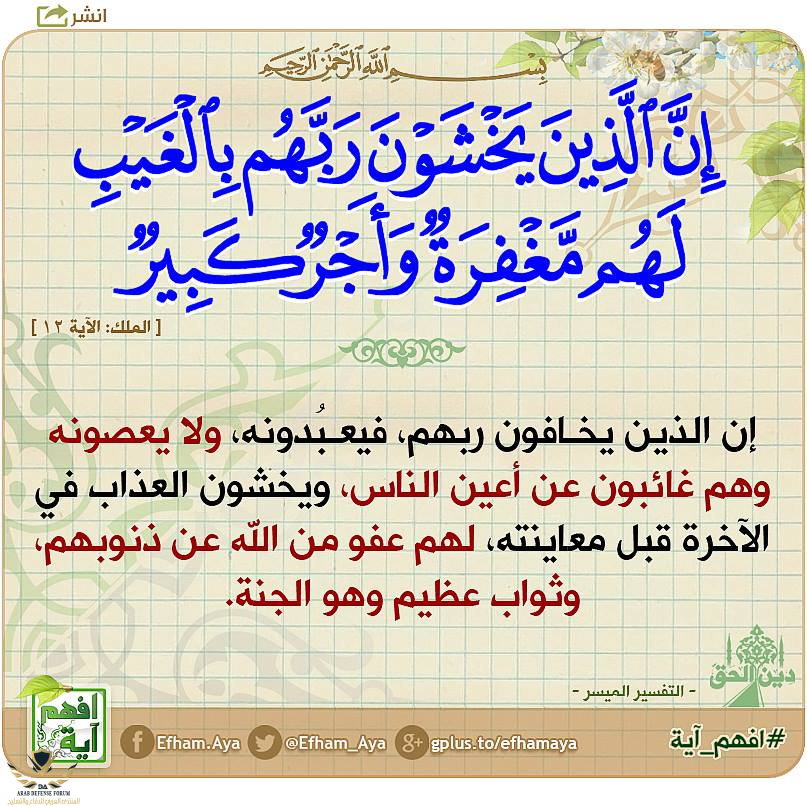 انشر
بِسْمِ ٱللَّهِ ٱلرَّحْمَٰنِ ٱلرَّحِيمِ
إِنَّ ٱلَّذِينَ يَخْشَوْنَ رَبَّهُم بِٱلْغَيْبِ
لَهُم مَّغْفِرَةٌ وَأَجْرٌ كَبِيرٌ
[ الملك: الآية ١٢ ]
إن الذين يخـافون ربهم، فيعـبُدونه، ولا يعصونه
وهم غائبون عن أعين الناس، ويخشون العذاب في
الآخرة قبل معاينته، لهم عفو من الله عن ذنوبهم،
وثواب عظيم وهو الجنة.
دين الحق
- التفسير الميسر -
#افهم_آية
gplus.to/efhamaya
@Efham_Aya
Efham.Aya
افهم
آية
DA
ARAB DEFENSE FORUM
المنتدى العربي للدفاع والتسليح